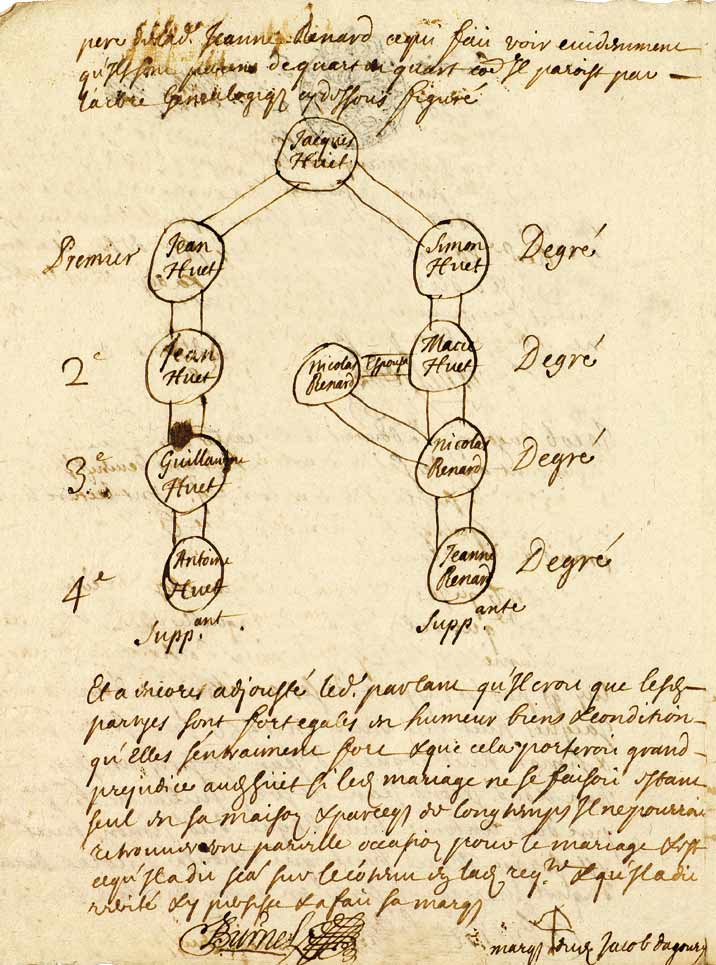 pere de lad. Jeanne Renard ce qui fait voir evidemment
qu'Ils sont parens de quart en quart co͞e Il paroist par
l'arbre Genealogiqz cy dessous figuré
Jacques
Huet
Premier
Jean
Huet
Simon
Huet
Degré
2e
Jean
Huet
Nicolas
Renard
Espouse
Marie
Huet
Degré
3e.
Guillaume
Huet
Nicolas
Renard
Degré
4e
Antoine
Huet
Jeanne
Renard
Degré
Supp.ant
Supp.ante
Et a encores adjousté led. parlant qu'Il croit que lesd.
partyes sont fort egales en humeur biens & condition
qu'Elles s'entraiment fort & que cela porteroit grand
prejudice aud Huet si led mariage ne se faisoit estant
seul en sa maison & parceqz de longtemps Il ne pourra
retrouver une pareille occasion pour le mariage & est
ce qu'Il a dit sur le contenu en lad reqte & qu'Il a dit
verité & y persiste & a fait sa marqz
marqz dud Jacob